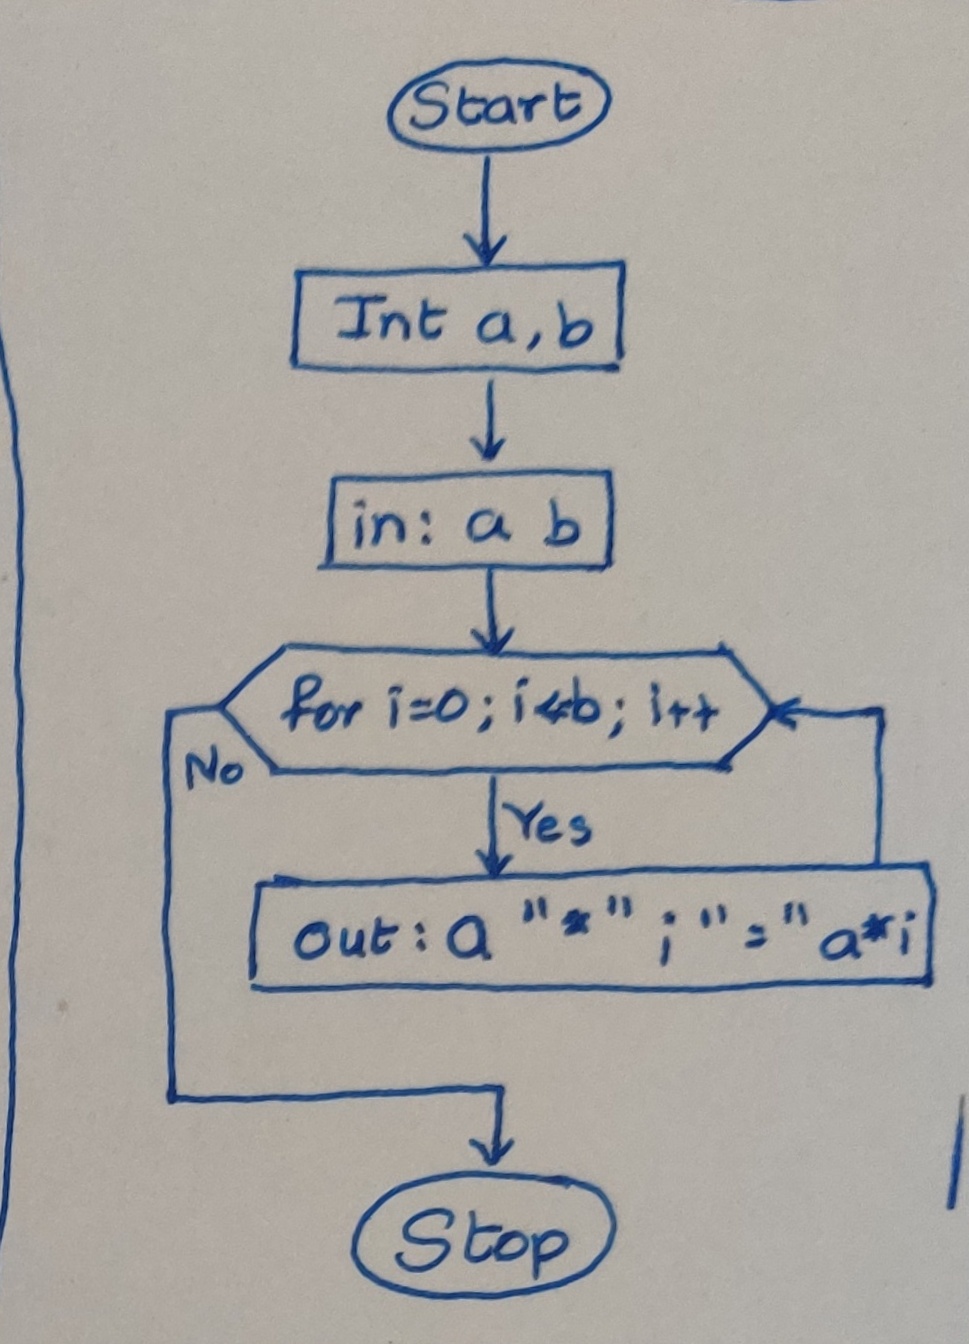 Start
Int a,b
in: a b
for i=0; i<b; i++
No
Yes
out: a "*" i "=" a*i
Stop